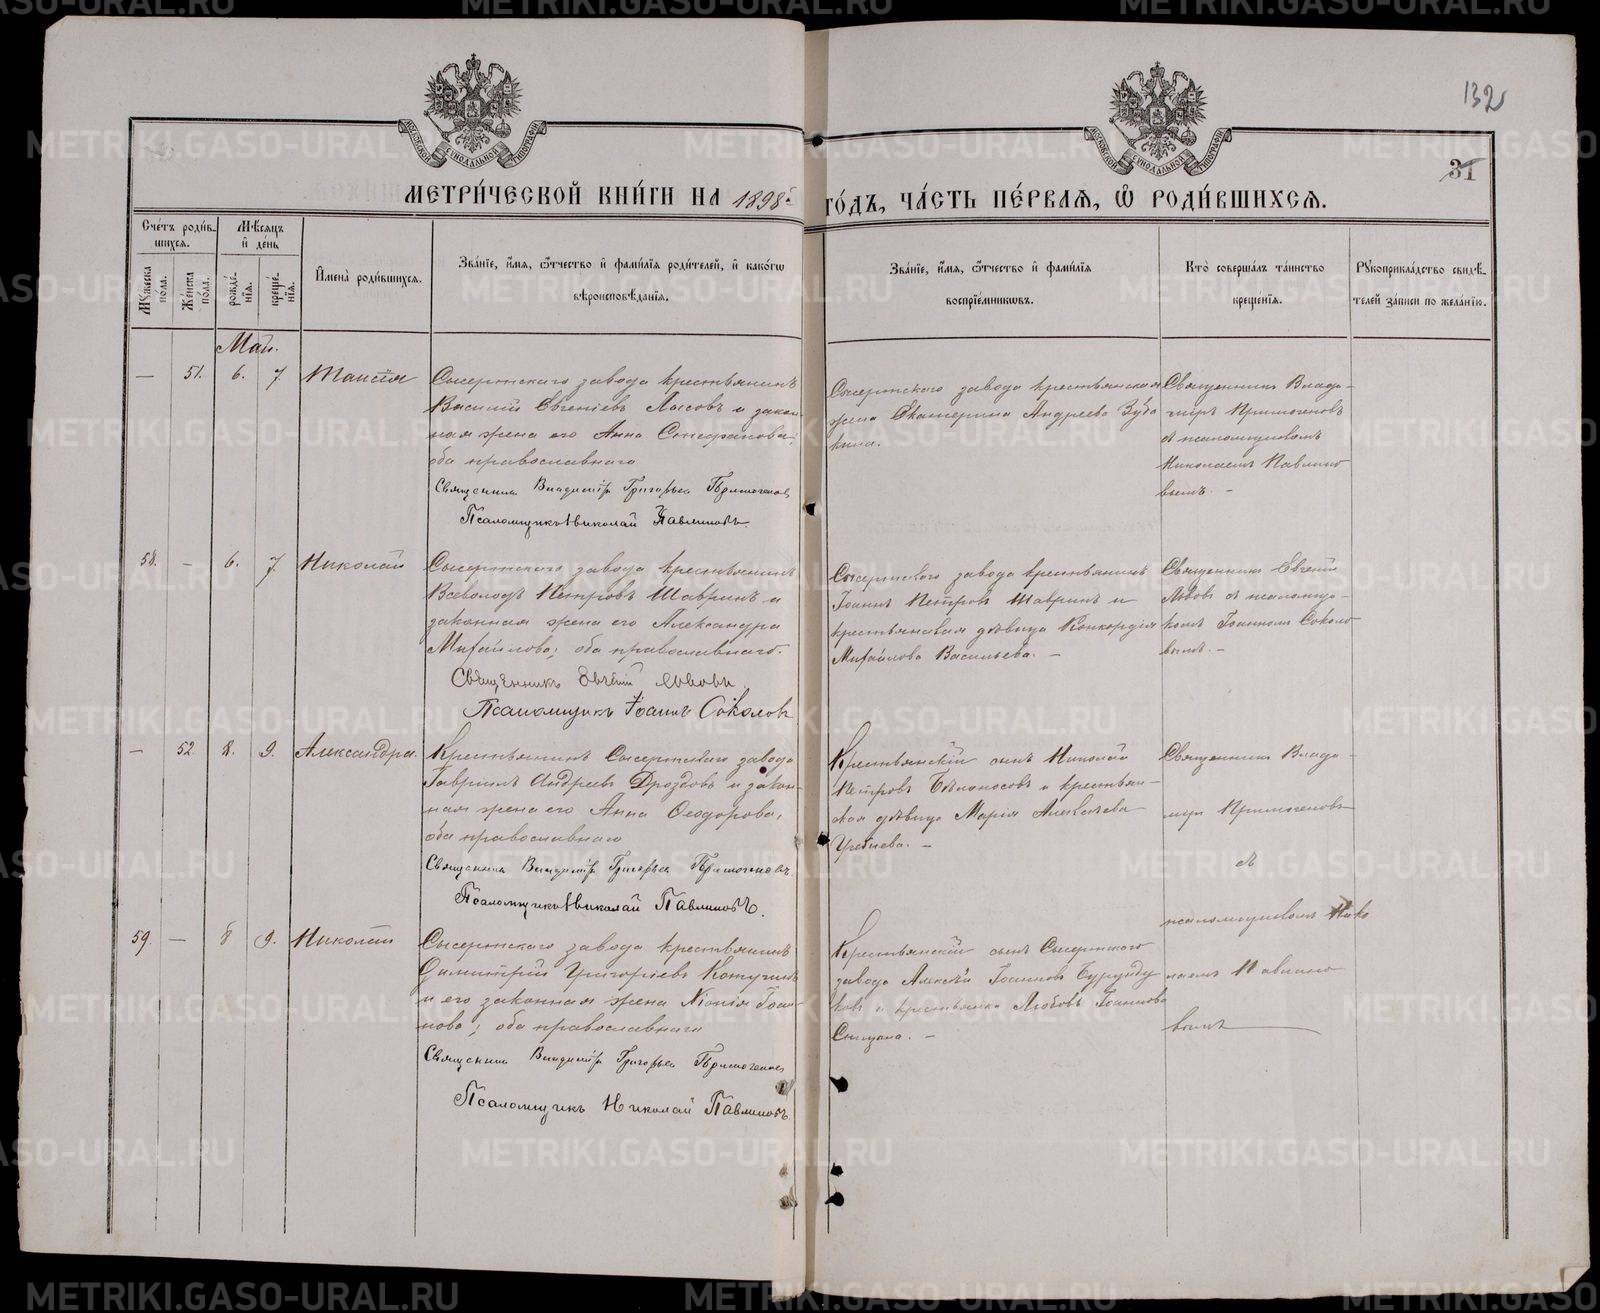 132
31
МЕТРИ́ЧЕСКОЙ КНИ́ГИ НА 1898й ГО́ДЪ, ЧА́СТЬ ПЕ́РВАЯ, Ѽ РОДИ́ВШИХСЯ.
Сче́тъ роди́в-
шихся.
Му́жеска по́ла.
Же́нска по́ла.
Мѣ́сяцъ
и́ де́нь
рожде́-
нїя.
креще́-
нїя.
И҆мена̀ роди́вшихся.
Зва́нїе, и҆́мя, ѻ҆́тчество и҆ фами́лїя роди́телей, и҆ како́гѡ
вѣроисповѣ́данїя.
Зва́нїе, и҆́мя, ѻ҆́тчество и҆ фами́лїя
воспрїе́мниковъ.
Кто̀ соверша́лъ та́инство
креще́нїя.
Рꙋкоприкла́дство свидѣ́-
телей за́писи по жела́нїю.
Май.
— 51. 6. 7 Таисія
Сысертскаго завода крестьянинъ
Василій Евгеніевъ Лысовъ и закон-
ная жена его Анна
оба православнаго
Священникъ Владиміръ Григорьев Примогенов
Псаломщикъ Николай Павлиновъ.
Сысертскаго завода крестьянская
жена Екатерина Андреева Зуба
кина.
Священникъ Влади-
міръ Примогеновъ
съ псаломщикомъ
Николаемъ Павлино
вымъ. –
58. — 6. 7 Николай
Сысертскаго завода крестьянинъ
Всеволодъ Петровъ Шавринъ и
законная жена его Александра
Михайлова; оба православнаго.
Священникъ Евгеній Львовъ.
Псаломщикъ Іоаннъ Соколов
Сысертскаго завода крестьянинъ
Іоаннъ Петровъ Шавринъ и
крестьянская дѣвица Конкордія
Михайлова Васильева. –
Священникъ Евгеній
Львовъ съ псаломщи-
комъ Іоанномъ Соколо
вымъ. –
— 52 8. 9. Александра.
Крестьянинъ Сысертскаго завода
Гавріилъ Андреевъ Дроздовъ и закон-
ная жена его Анна Ѳеодорова,
оба православнаго
Священникъ Владиміръ Григорьев Примогеновъ.
Псаломщикъ Николай Павлиновъ.
Крестьянскій сынъ Николай
Петровъ Бѣлоносовъ и крестьян-
ская дѣвица Марія Алексѣева
Священникъ Влади-
міръ Примогеновъ
съ
псаломщикомъ Нико
лаемъ Павлино
вымъ
59. — 8 9. Николай
Сысертскаго завода крестьянинъ
Димитрій Григоріевъ
и его законная жена Іоан-
нова; оба православнаго
Священникъ Владиміръ Григорьев Примогеновъ
Псаломщикъ Николай Павлиновъ.
Крестьянскій сынъ Сысертскаго
завода Алексѣй Іоанновъ Бурунду
ковъ и крестьянка Любовь Іоаннова
METRIKI.GASO-URAL.RU